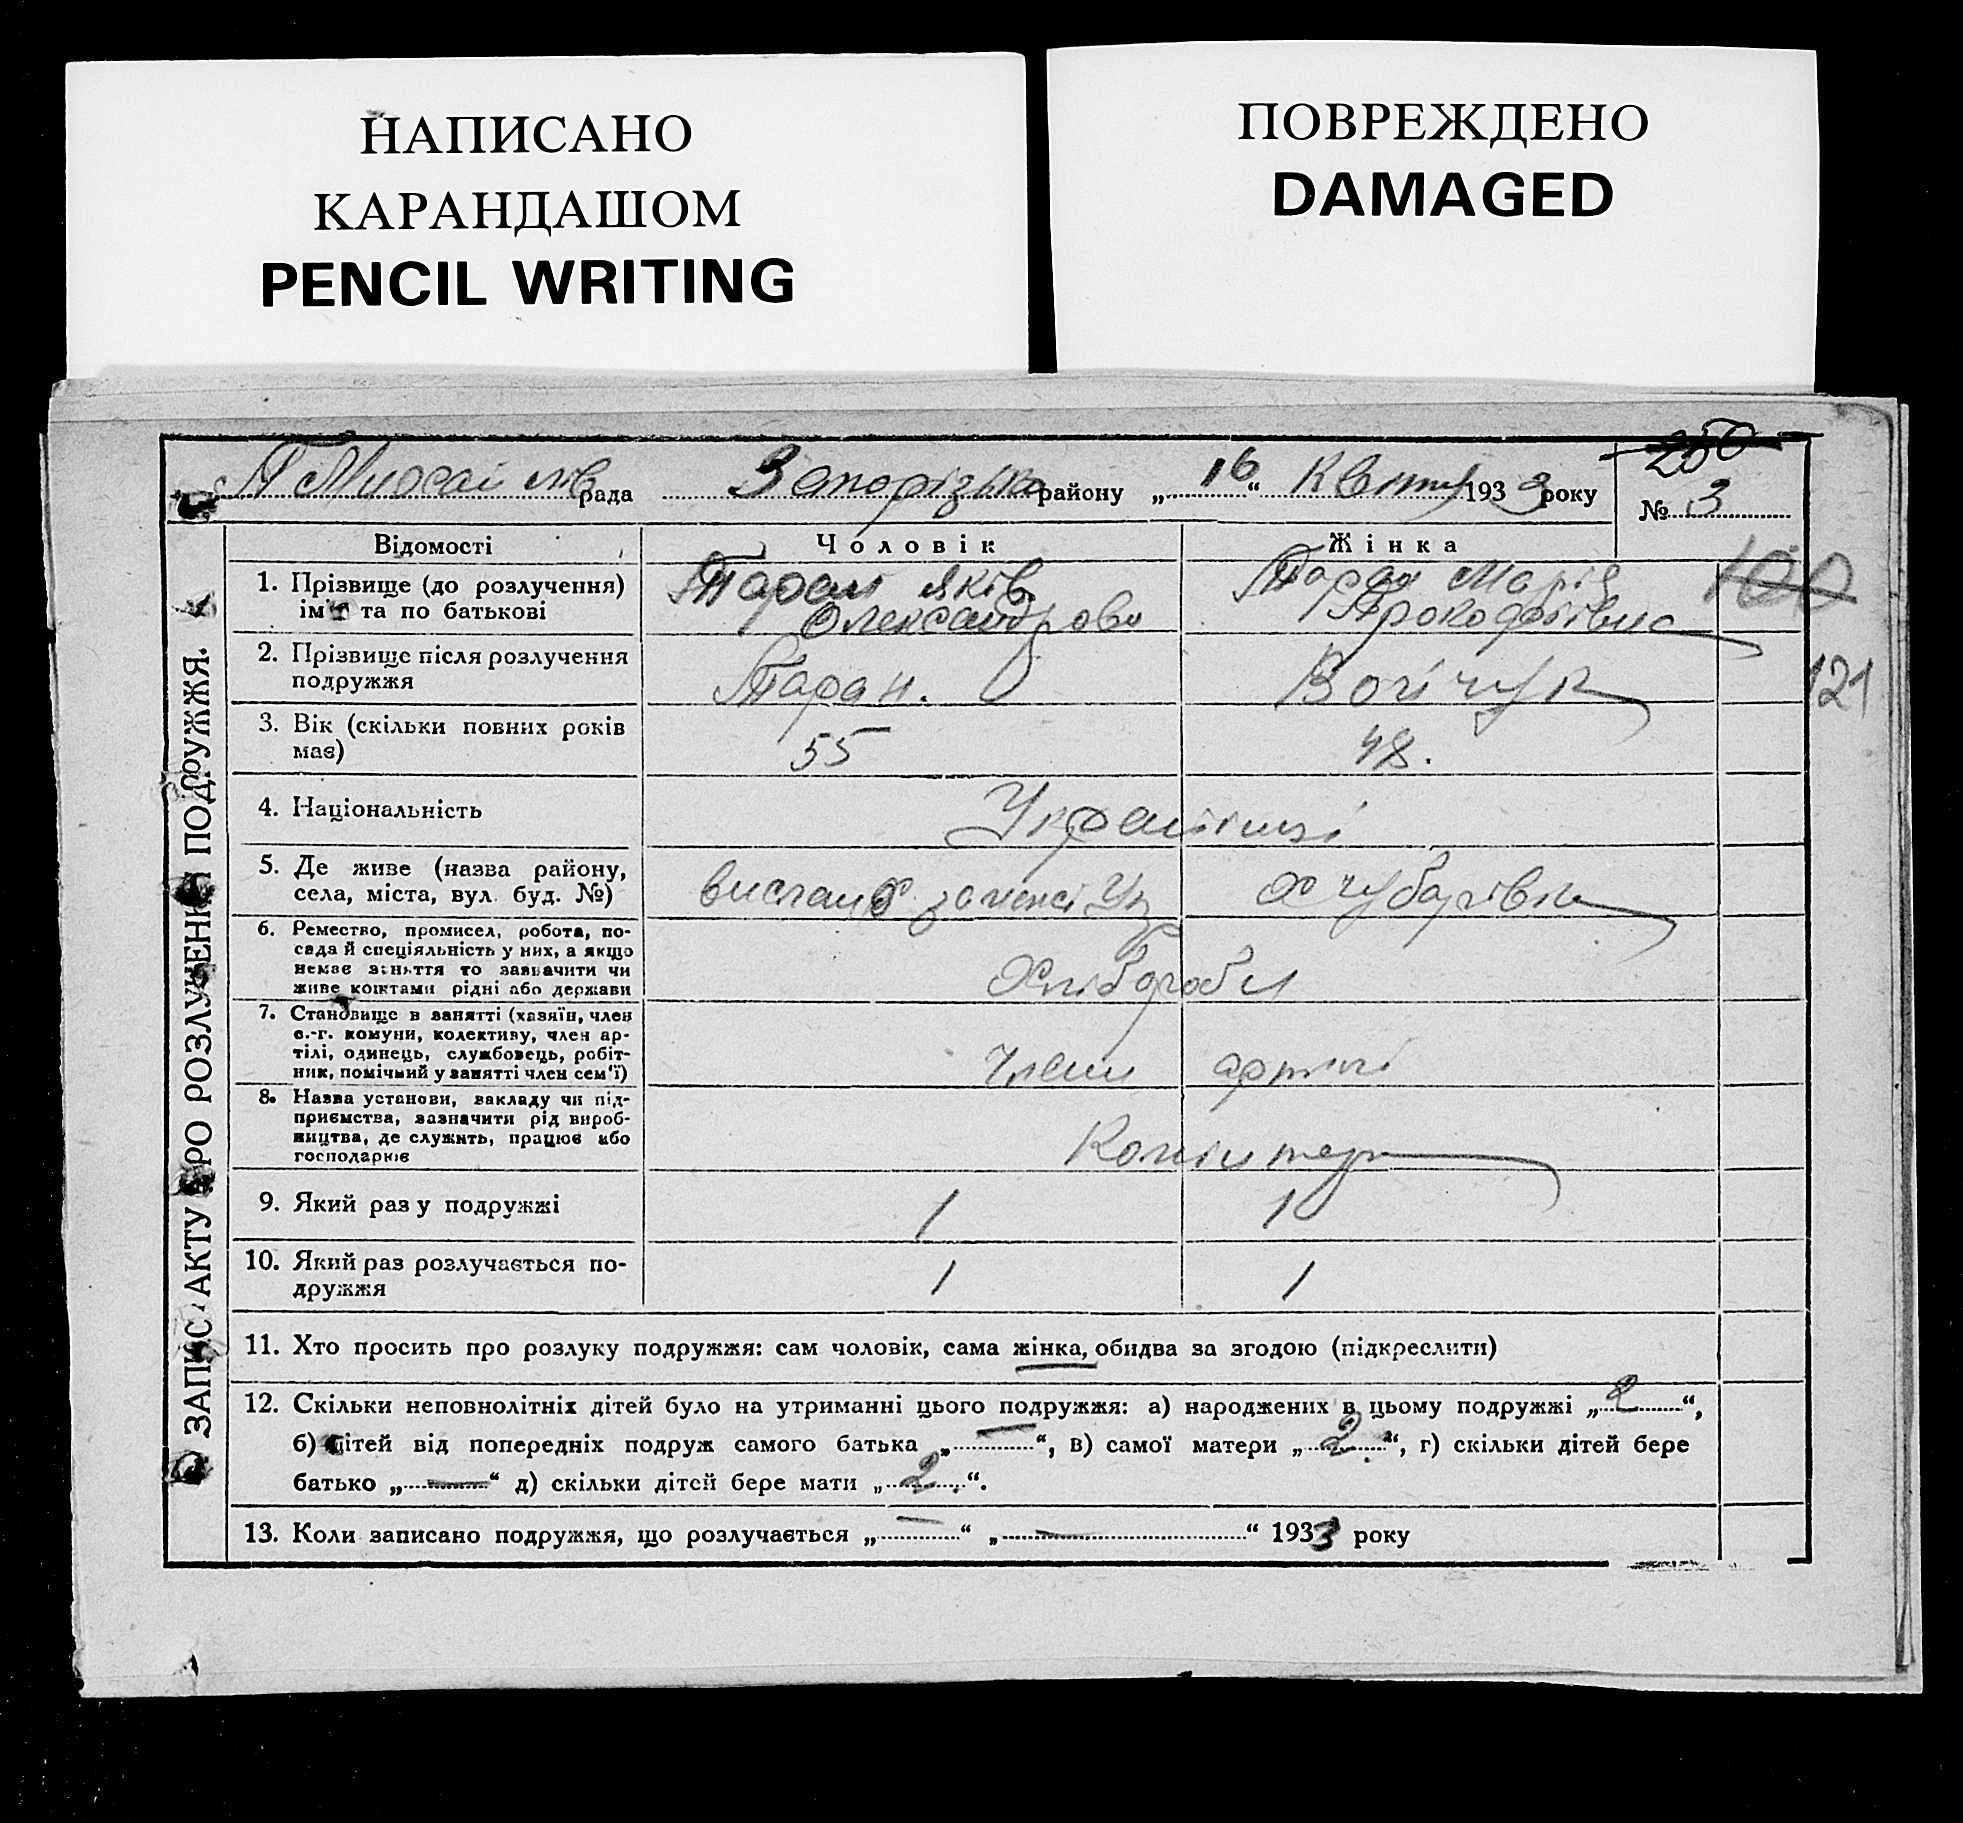 НАПИСАНО
КАРАНДАШОМ
PENCIL WRITING
ПОВРЕЖДЕНО
DAMAGED
250
рада Запорізько району „16“ 1933 року
№ 3
ЗАПИС АКТУ ПРО РОЗЛУЧЕННЯ ПОДРУЖЖЯ.
Відомості Чоловік Жінка
100
1. Прізвище (до розлучення) Таран Яків Таран Марія
ім'я та по батькові Олександрови Прокофіївна
2. Прізвище після розлучення
подружжя Таран.
121
3. Вік (скільки повних років
має) 55 48.
4. Національність Українці
5. Де живе (назва району,
села, міста, вул. буд. №)
6. Ремество, промисел, робота, по-
сада й спеціяльність у них, а якщо
немає заняття то зазначити чи
живе коштами рідні або держави
Хлібороби
7. Становище в занятті (хазяїн, член
с.-г. комуни, колективу, член ар-
тілі, одинець, службовець, робіт-
ник, помічний у занятті член сем'ї)
Члени артілі
8. Назва установи, закладу чи під-
приємства, зазначити рід вироб-
ництва, де служить, працює або
господарює
9. Який раз у подружжі 1 1
10. Який раз розлучається по-
дружжя 1 1
11. Хто просить про розлуку подружжя: сам чоловік, сама жінка, обидва за згодою (підкреслити)
12. Скільки неповнолітніх дітей було на утриманні цього подружжя: а) народжених в цьому подружжі „2“,
б) дітей від попередніх подруж самого батька „—“, в) самої матери „2.“, г) скільки дітей бере
батько „—“ д) скільки дітей бере мати „2.“.
13. Коли записано подружжя, що розлучається „—“ „—“ 1933 року